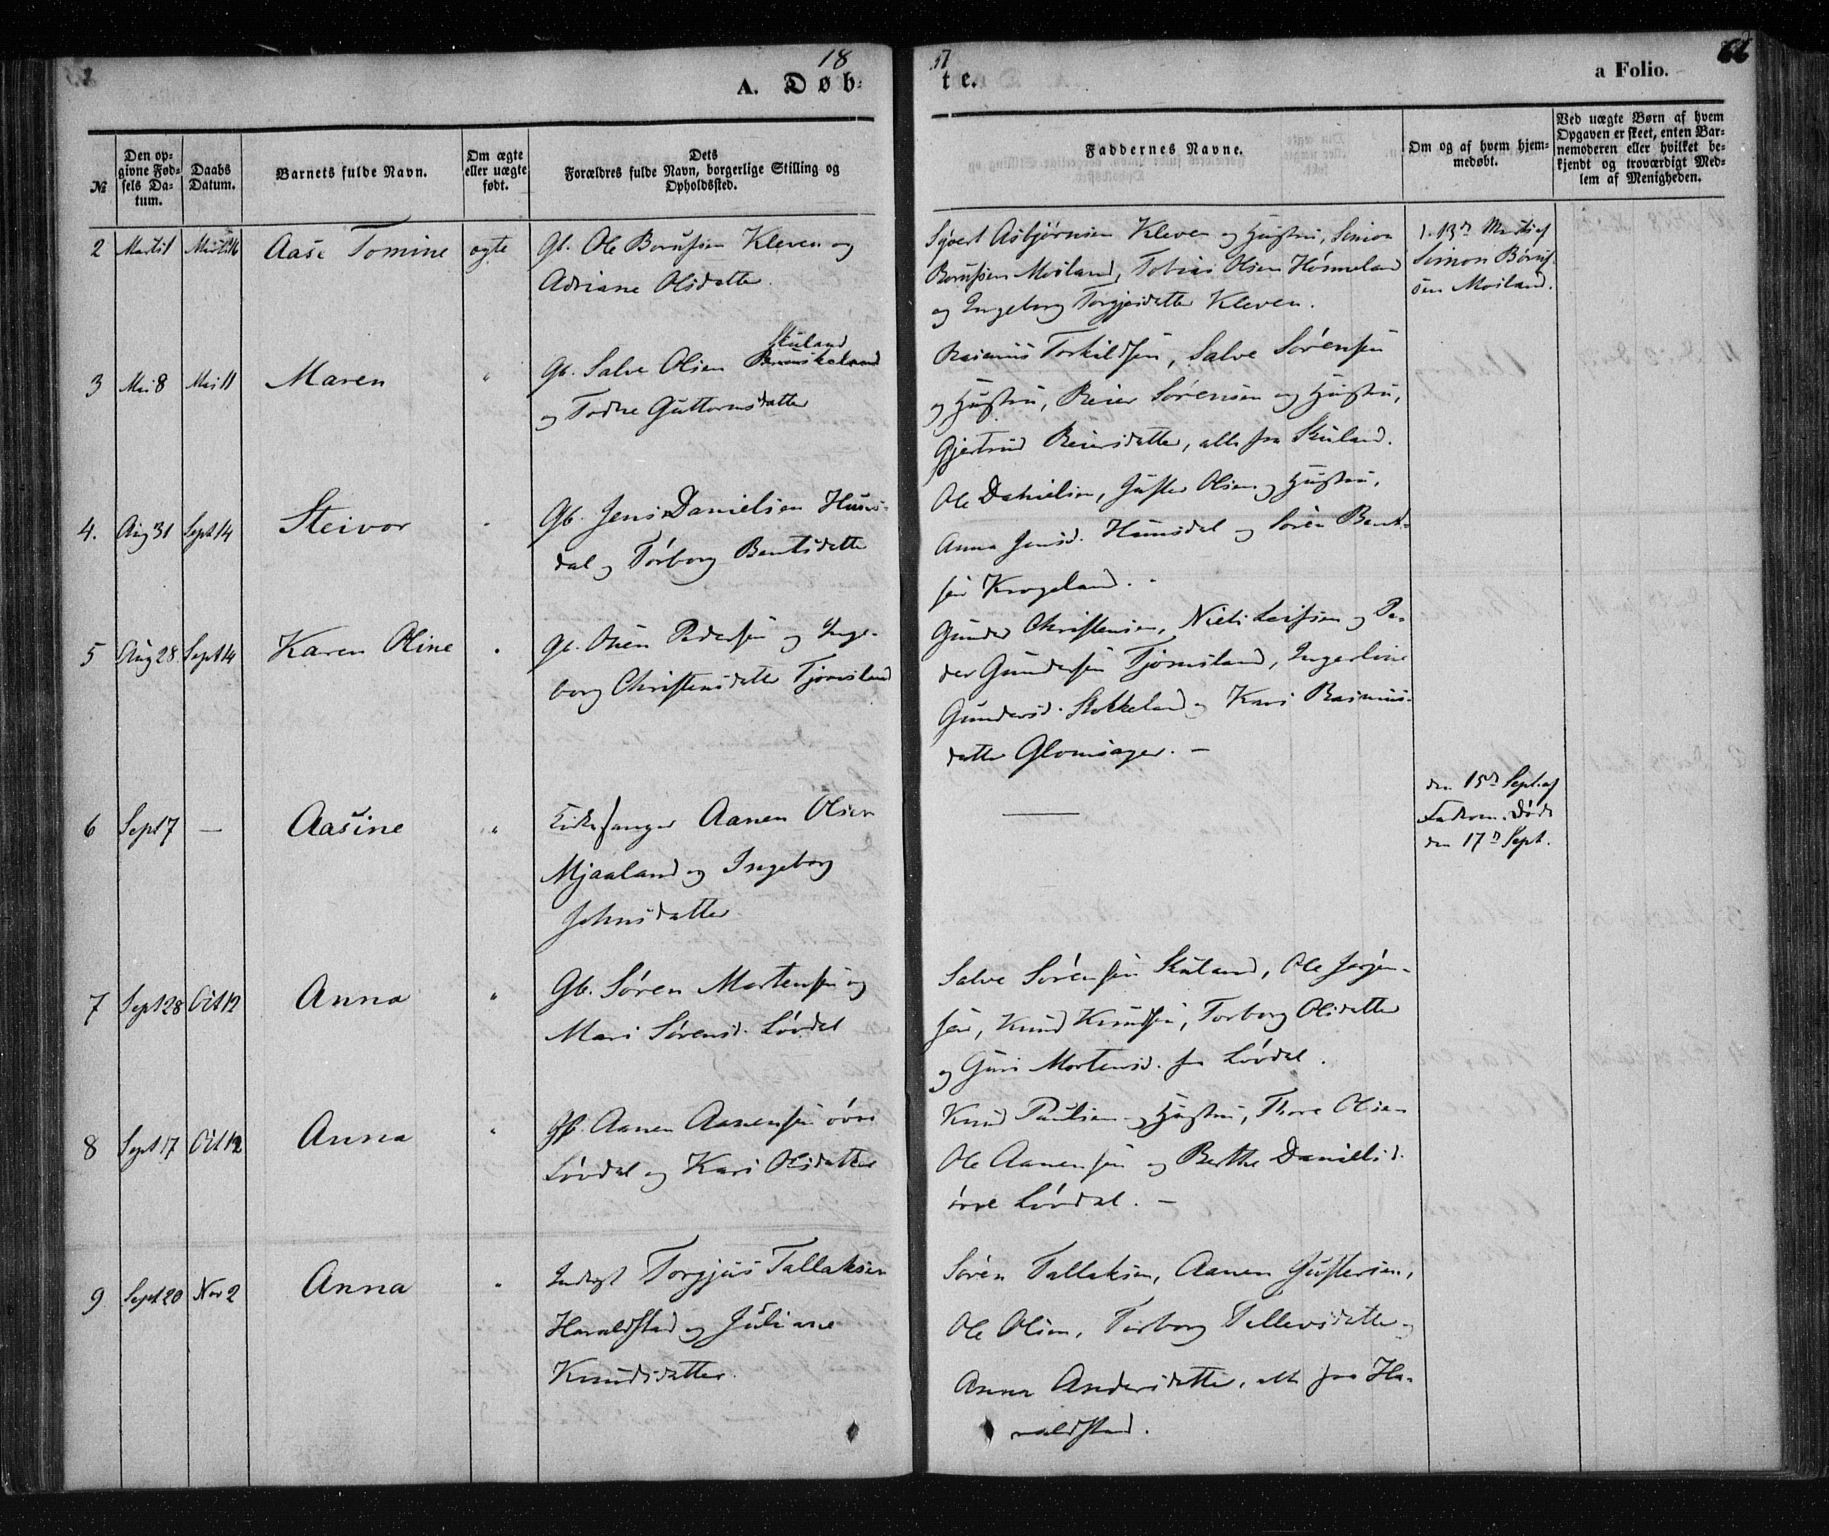 18 57
A. Døb- te. a Folio. 62
№
Den op-
givne Fød-
sels Da-
tum.
Daabs
Datum.
Barnets fulde Navn.
Om ægte
eller uægte
født.
Dets
Forældres fulde Navn, borgerlige Stilling og
Opholdssted.
Faddernes Navne.
Om og af hvem hjem-
medøbt.
Ved uægte Børn af hvem
Opgaven er skeet, enten Bar-
nemoderen eller hvilket be-
kjendt og troværdigt Med-
lem af Menigheden.
2 Marts 1 Marts 16 Aase Tomine ægte
Gb. Ole Børufsen Kleven og
Adriane Olsdatter
Syvert Asbjørnsen Kleven og Hustru, Simon
Børufsen Moiland, Tobias Olsen Hønneland
og Ingeborg Torgjusdatter Kleven.
d. 13de Marts af
Simon Børuf-
sen Moiland.
3 Mai 8 Mai 11 Maren "
Skuland
Gb. Salve Olsen
og Todne Guttormsdatter
Rasmus Torkildsen, Salve Sørensen
og Hustru, Reier Sørensen og Hustru,
Gjertrud Reiersdatter, alle fra Skuland.
4. Aug 31 Sept 14 Steivor "
Gb. Jens Danielsen Huns-
dal og Torborg Bentsdatter
Ole Danielsen, Gustav Olsen og Hustru,
Anna Jensd. Hunsdal og Søren Bent-
sen Krogeland.
5 Aug 28 Sept 14 Karen Oline "
Gb. Osten Pedersen og Inge-
borg Christensdatter Tjomsland
Gunder Christensen, Niels Leifsen og Pe-
der Gundersen Tjomsland, Ingerline
Gundersd. Stokkeland og Kari Rasmus-
datter Glomsager. —
6 Sept 7 — Aasine "
Kirkesanger Aanen Olsen
Mjaaland og Ingeborg
Johnsdatter
—
den 15de Sept. af
Faderen. Døde
den 17de Sept.
7 Sept 28 Oct 12 Anna "
Gb. Søren Mortensen og
Mari Sørensd. Løvdal
Salve Sørensen Skuland, Ole Jørgen-
sen, Knud Knudsen, Torborg Olsdatter
og Guri Mortensd. fra Løvdal.
8 Sept 17 Oct 12 Anna "
Gb. Aanen Aanensen øvre
Løvdal og Kari Olsdatter
Knud Paulsen og Hustru, Thore Olsen
Ole Aanensen og Berthe Danielsd.
øvre Løvdal. —
9 Sept 20 Nov 2 Anna "
Inderst Torgjus Tallaksen
Haraldstad og Juliane
Knudsdatter.
Søren Tallaksen, Aanen Gustavsen,
Ole Olsen, Torborg Tellevsdatter og
Anna Andersdatter, alle fra Ha-
raldstad.